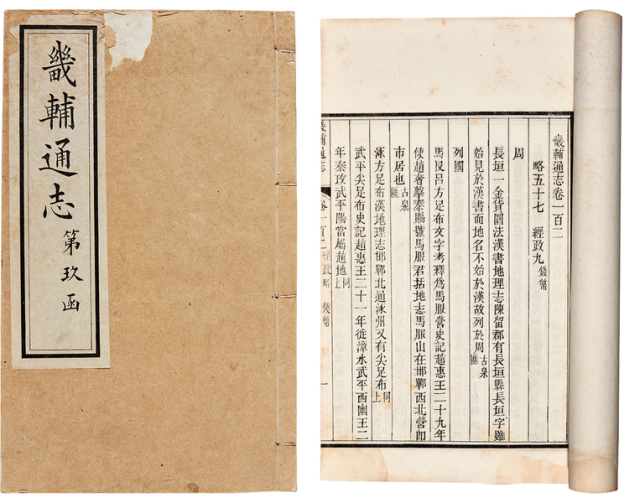 畿輔通志
第玖函
畿輔通志卷一百二
略五十七 經政九 錢幣
周
長垣一金貨圜法漢書地理志陳留郡有長垣縣長垣字雖
始見於漢書而地名不始於漢故列於周古泉匯
列國
馬服呂方足布文字考釋為馬服營史記趙惠王二十九年
使趙奢擊秦賜號馬服君括地志馬服山在邯鄲西北營即
市居也古泉匯
涿方足布漢地理志邯鄲北通涿州又有尖足布同上
武平尖足布史記趙惠王二十一年徙漳水武平西幽王二
年秦攻武平陽當屬趙地同上
畿輔通志 卷一百二 經政略 錢幣 一